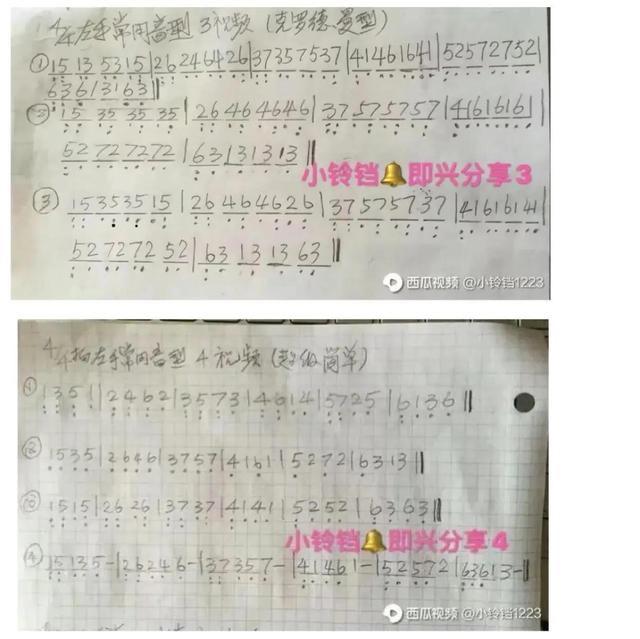 4/4左手常用音型 3视频 (克罗德曼型)
① 15 13 53 15 | 26 24 64 26 | 37 35 75 37 | 41 46 16 41 | 52 57 27 52 |
63 61 31 63 ||
② 15 35 35 35 | 26 46 46 46 | 37 57 57 57 | 41 61 61 61 |
52 72 72 72 | 63 13 13 13 ||
小铃铛🔔即兴分享3
③ 15 35 35 15 | 26 46 46 26 | 37 57 57 37 | 41 61 61 41 |
52 72 72 52 | 63 13 13 63 ||
西瓜视频 @小铃铛1223
4/4拍左手常用音型 4视频 (超级简单)
① 1 3 5 1 | 2 4 6 2 | 3 5 7 3 | 4 6 1 4 | 5 7 2 5 | 6 1 3 6 ||
② 1535 | 2646 | 3757 | 4161 | 5272 | 6313 ||
③ 1515 | 2626 | 3737 | 4141 | 5252 | 6363 ||
小铃铛🔔即兴分享4
④ 15 13 5 - | 26 24 6 - | 37 35 7 - | 41 46 1 - | 52 57 2 | 63 61 3 - ||
西瓜视频 @小铃铛1223